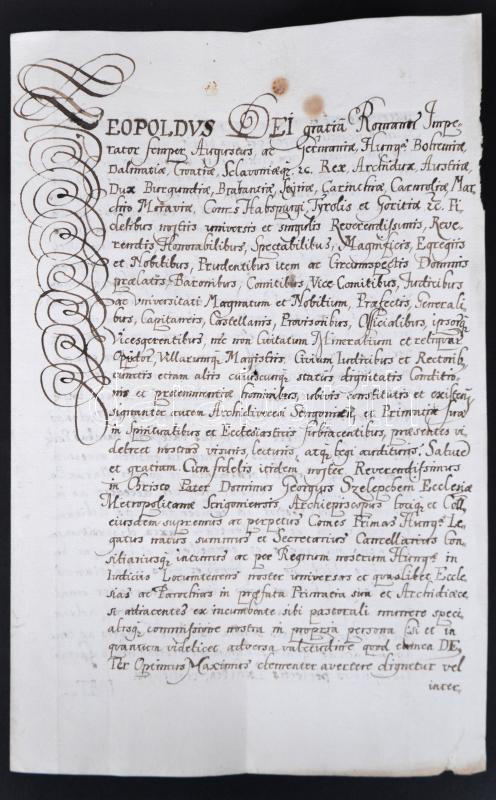 LEOPOLDVS DEI gratiâ Romanor Impe-
rator semper Augustus ac Germaniæ, Hungæ Bohemiæ
Dalmatiæ, Croatiæ, Sclavoniæq; &c. Rex, Archidux, Austriæ
Dux Burgundiæ, Brabantiæ, Styriæ, Carinthiæ, Carnioliæ, Mar-
chio Moraviæ, Comes Habspurgi, Tyrolis et Goritiæ &c. Fi-
delibus nostris universis et singulis Reverendissimis, Reve-
rendis Honorabilibus, Spectabilibus, Magnificis, Egregiis
et Nobilibus, Prudentibus item ac Circumspectis Dominis
prælatis, Baronibus, Comitibus, Vice Comitibus, Iudicibus
ac Universitati Magnatum et Nobilium, Præfectis, Generali-
bus, Capitaneis, Castellanis, Provisoribus, Officialibus, ipsorq;
Vicesgerentibus, nec non Civitatum Minerabium et reliquar
Opidor, Villarumq; Magistris Civium Iudicibus et Rectorib,
cunctis etiam aliis cuiuscunq; status dignitatis Conditio-
nis et præeminentiæ hominibus, ubivis constitutis et
signanter autem Archidiœcesi Strigoniæ et Primatiæ
in Spiritualibus et Ecclesiasticis subiacentibus, præsentes vi-
debitis nostras visuris, lecturis, atq; legi audituris, Salutē
et gratiam. Cum fidelis itidem noster Reverendissimus
in Christo Pater Dominus Georgius Szelepcheni Ecclesiæ
Metropolitanæ Strigoniensis, Archiepiscopus locīq; et Cott
eiusdem supremus ac perpetuus Comes Primas Hungæ Le-
gatus natus summus et Secretarius Cancellarius Con-
siliariusq; intimus ac per Regnum nostrum Hungæ in
Iudiciis Locumtenens noster universas et quaslibet Eccle-
sias ac Parochias in præfata Primatia sua et Archidiœce-
si adiacentes ex incumbente sibi pastorali munere speci-
aliq; commissione nostra in propria persona sua et in
quantum videlicet adversa valetudine quod clemen DE,
Ter Optimus Maximus clementer avertere dignetur vel
inter,